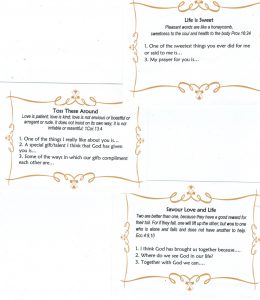 Life is Sweet
Pleasant words are like a honeycomb,
sweetness to the soul and health to the body Prov 16:24
1. One of the sweetest things you ever did for me
or said to me is...
3. My prayer for you is...
Toss These Around
Love is patient, love is kind; love is not envious or boastful or
arrogant or rude. It does not insist on its own way; it is not
irritable or resentful; 1Cor.13:4
1. One of the things I really like about you is...
2. A special gift/talent I think that God has given
you is...
3. Some of the ways in which our gifts compliment
each other are...
Savour Love and Life
Two are better than one, because they have a good reward for
their toil. For if they fall, one will lift up the other, but woe to one
who is alone and falls and does not have another to help.
Ecc 4:9,10
1. I think God has brought us together because....
2. Where do we see God in our life?
3. Together with God we can....